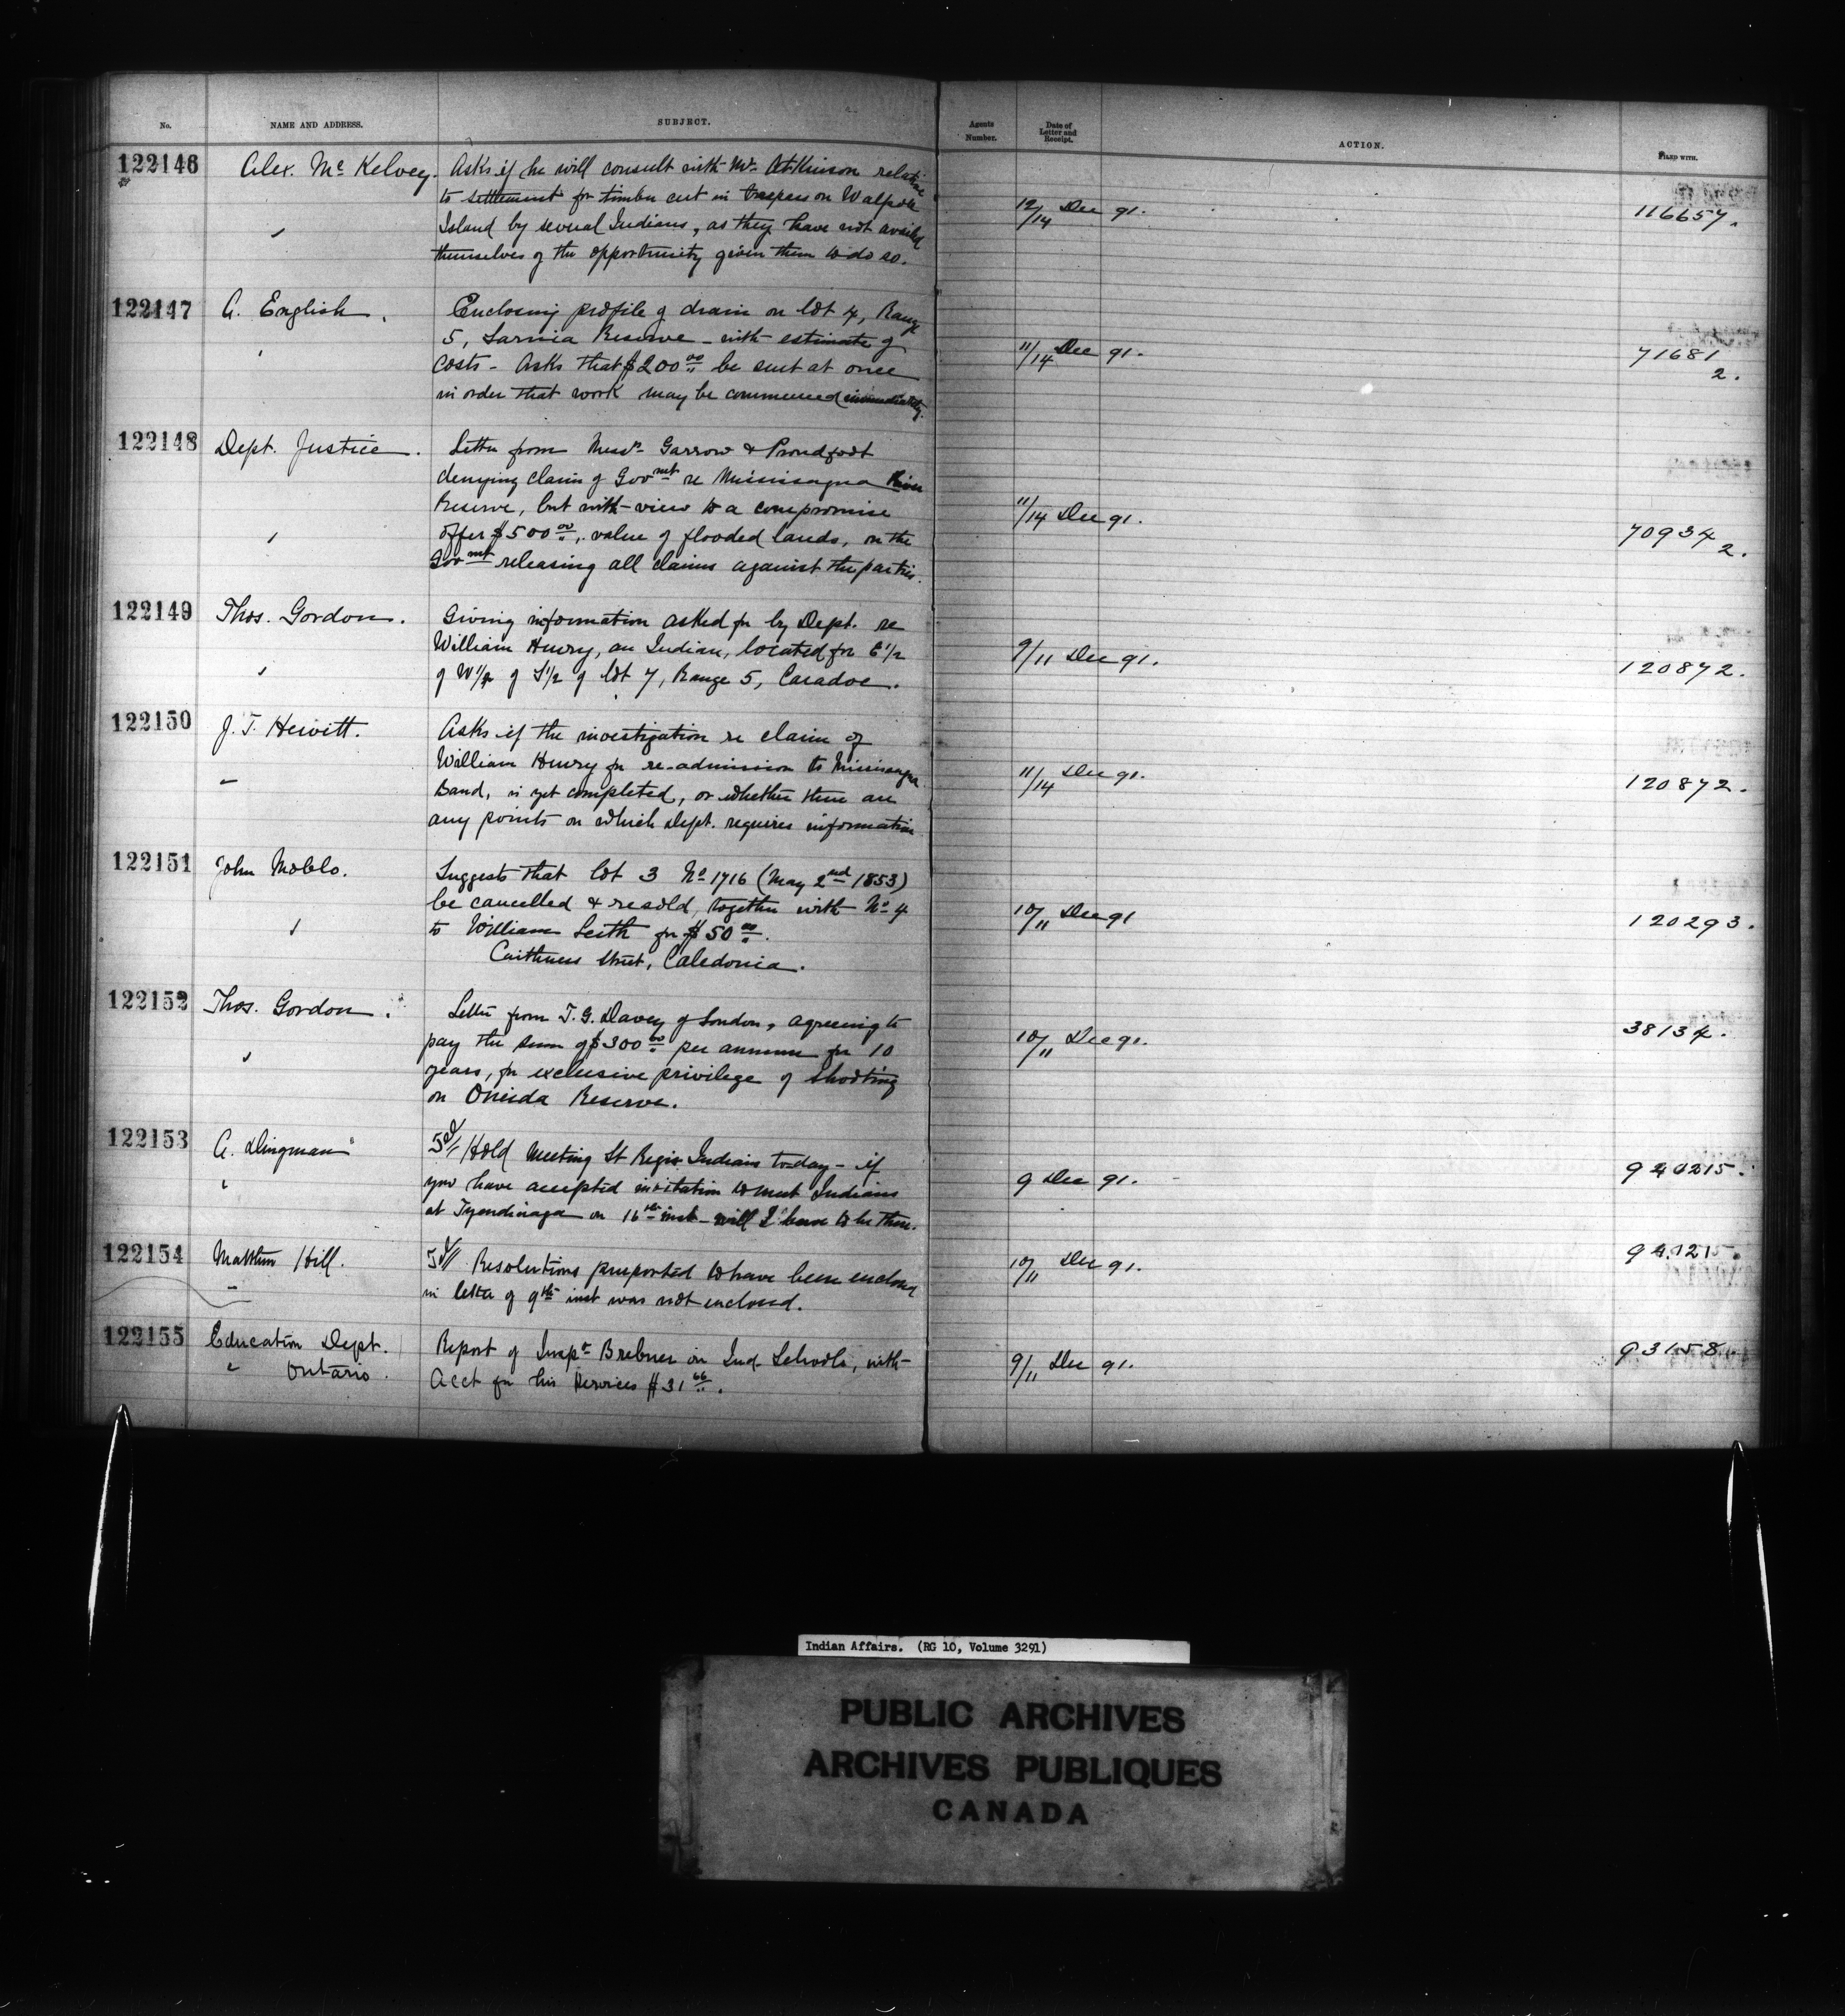 No. NAME AND ADDRESS. SUBJECT. Agents Number. Date of Letter and Receipt. ACTION. FILED WITH.
122146 Alex. McKelvey. Asks if he will consult with Mr. Atkinson relative
to settlement for timber cut in trespass on Walpole 12/14 Dec 91. 116657.
Island by several Indians, as they have not availed
themselves of the opportunity given them to do so.
122147 A. English. Enclosing profile of drain on lot 4, Range
5, Sarnia Reserve - with estimate of 11/14 Dec 91. 71681
costs - Asks that $200.00 be sent at once 2.
in order that work may be commenced immediately.
122148 Dept. Justice. Letter from Messrs. Garrow & Proudfoot
denying claim of Govmt re Mississagua River
Reserve, but with view to a compromise 11/14 Dec 91.
offer $500.00, value of flooded lands, on the 70934
Govmt releasing all claims against the parties. 2.
122149 Thos. Gordon. Giving information asked for by Dept. re
William Henry, an Indian, located for E 1/2 9/11 Dec 91. 120872.
of W 1/2 of S 1/2 of lot 7, Range 5, Caradoc.
122150 J. T. Hewitt. Asks if the investigation re claim of
William Henry for re-admission to Missisagua 11/14 Dec 91. 120872.
Band, is yet completed, or whether there are
any points on which Dept. requires information
122151 John Moblo. Suggests that lot 3 No 1716 (May 2nd 1853)
be cancelled & resold, together with No 4 10/11 Dec 91 120293.
to William Leith for $50.00.
Caithness Street, Caledonia.
122152 Thos. Gordon. Letter from T. G. Davey of London, agreeing to 38134.
pay the sum of $300.00 per annum for 10 10/11 Dec 91.
years, for exclusive privilege of shooting
on Oneida Reserve.
122153 A. Dingman Hold Meeting St Regis Indians to-day - if
you have accepted invitation to meet Indians 9 Dec 91. 940215.
at Tyendinaga on 16th inst - will I have to be there.
122154 Matthew Hill. Resolutions purported to have been enclosed 10/11 Dec 91. 940215.
in letter of 9th inst was not enclosed.
122155 Education Dept. Report of Inspr Brebner on Ind. Schools, with 9/11 Dec 91. 93158.
Ontario. Acct for his services $31.66.
Indian Affairs. (RG 10, Volume 3291)
PUBLIC ARCHIVES
ARCHIVES PUBLIQUES
CANADA